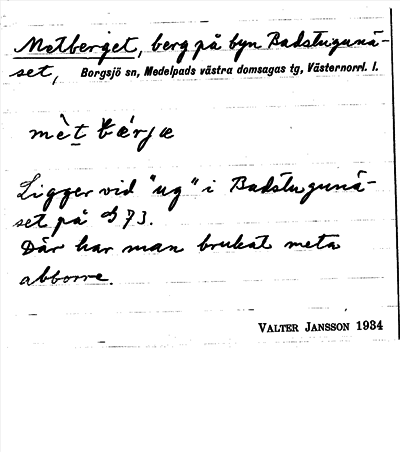 Metberget, berg på byn Badstugunä-
set, Borgsjö sn, Medelpads västra domsagas tg, Västernorrl. l.
mὲt bǽrjæ
Ligger vid "ug" i Badstugunä-
set på 73.
Där har man brukat meta
abborre.
VALTER JANSSON 1934